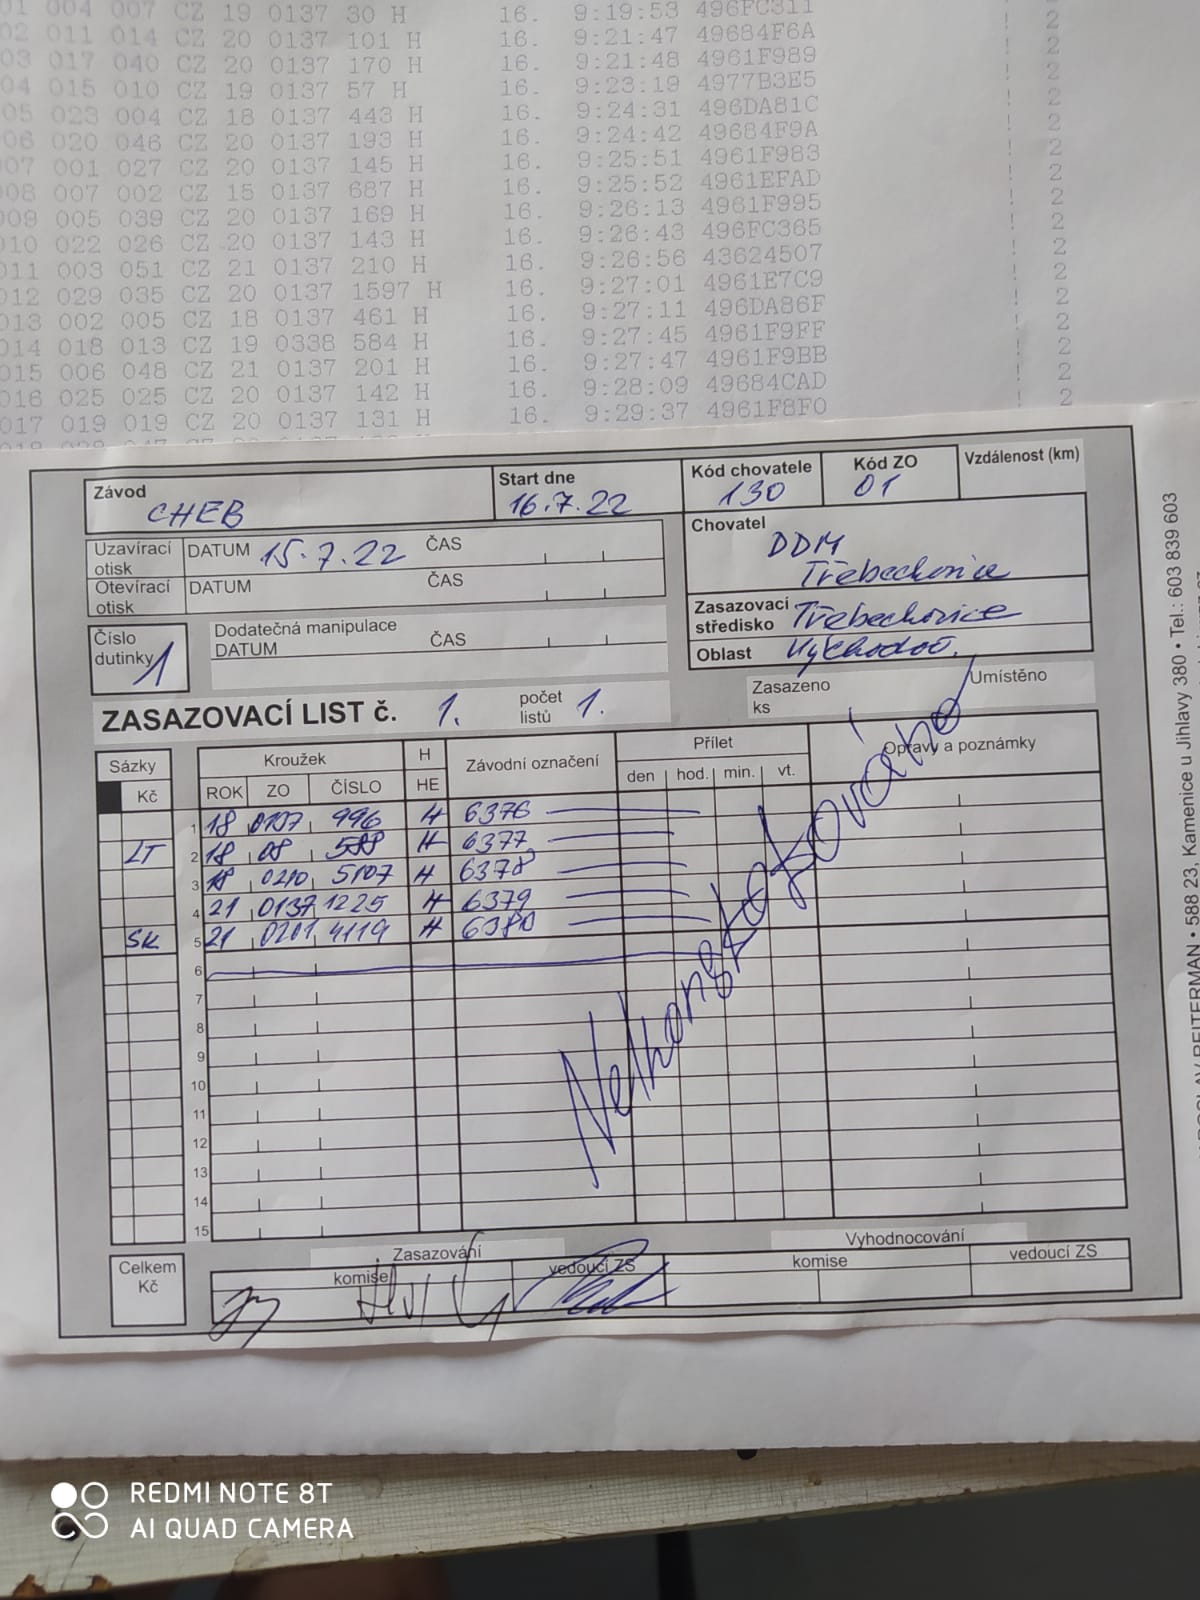 01 004 007 CZ 19 0137 30 H 16. 9:19:53 496FC311 ! 2
02 011 014 CZ 20 0137 101 H 16. 9:21:47 49684F6A ! 2
03 017 040 CZ 20 0137 170 H 16. 9:21:48 4961F989 ! 2
04 015 010 CZ 19 0137 57 H 16. 9:23:19 4977B3E5 ! 2
05 023 004 CZ 18 0137 443 H 16. 9:24:31 496DA81C ! 2
006 020 046 CZ 20 0137 193 H 16. 9:24:42 49684F9A ! 2
007 001 027 CZ 20 0137 145 H 16. 9:25:51 4961F983 ! 2
008 007 002 CZ 15 0137 687 H 16. 9:25:52 4961EFAD ! 2
009 005 039 CZ 20 0137 169 H 16. 9:26:13 4961F995 ! 2
010 022 026 CZ 20 0137 143 H 16. 9:26:43 496FC365 ! 2
011 003 051 CZ 21 0137 210 H 16. 9:26:56 43624507 ! 2
012 029 035 CZ 20 0137 1597 H 16. 9:27:01 4961E7C9 ! 2
013 002 005 CZ 18 0137 461 H 16. 9:27:11 496DA86F ! 2
014 018 013 CZ 19 0338 584 H 16. 9:27:45 4961F9FF ! 2
015 006 048 CZ 21 0137 201 H 16. 9:27:47 4961F9BB ! 2
016 025 025 CZ 20 0137 142 H 16. 9:28:09 49684CAD ! 2
017 019 019 CZ 20 0137 131 H 16. 9:29:37 4961F8F0 ! 2
Závod CHEB
Start dne 16.7.22
Kód chovatele 130
Kód ZO 01
Vzdálenost (km)
Uzavírací otisk DATUM 15.7.22 ČAS
Otevírací otisk DATUM ČAS
Chovatel DDM
Třebechovice
Číslo dutinky 1
Dodatečná manipulace
DATUM ČAS
Zasazovací středisko Třebechovice
Oblast Východoč.
ZASAZOVACÍ LIST č. 1. počet listů 1.
Zasazeno ks
Umístěno
Sázky Kč
Kroužek
H HE
Závodní označení
Přílet
Opravy a poznámky
ROK ZO ČÍSLO den hod. min. vt.
1 18 0107 996 H 6376
LT 2 18 08 588 H 6377
3 18 0210 5107 H 6378
4 21 0137 1225 H 6379
SK 5 21 0201 4119 H 6380
6
7
8
9
10
11
12
13
14
15
Celkem Kč
Zasazování
komise
vedoucí ZS
Vyhodnocování
komise
vedoucí ZS
588 23, Kamenice u Jihlavy 380 • Tel.: 603 839 603
REDMI NOTE 8T
AI QUAD CAMERA